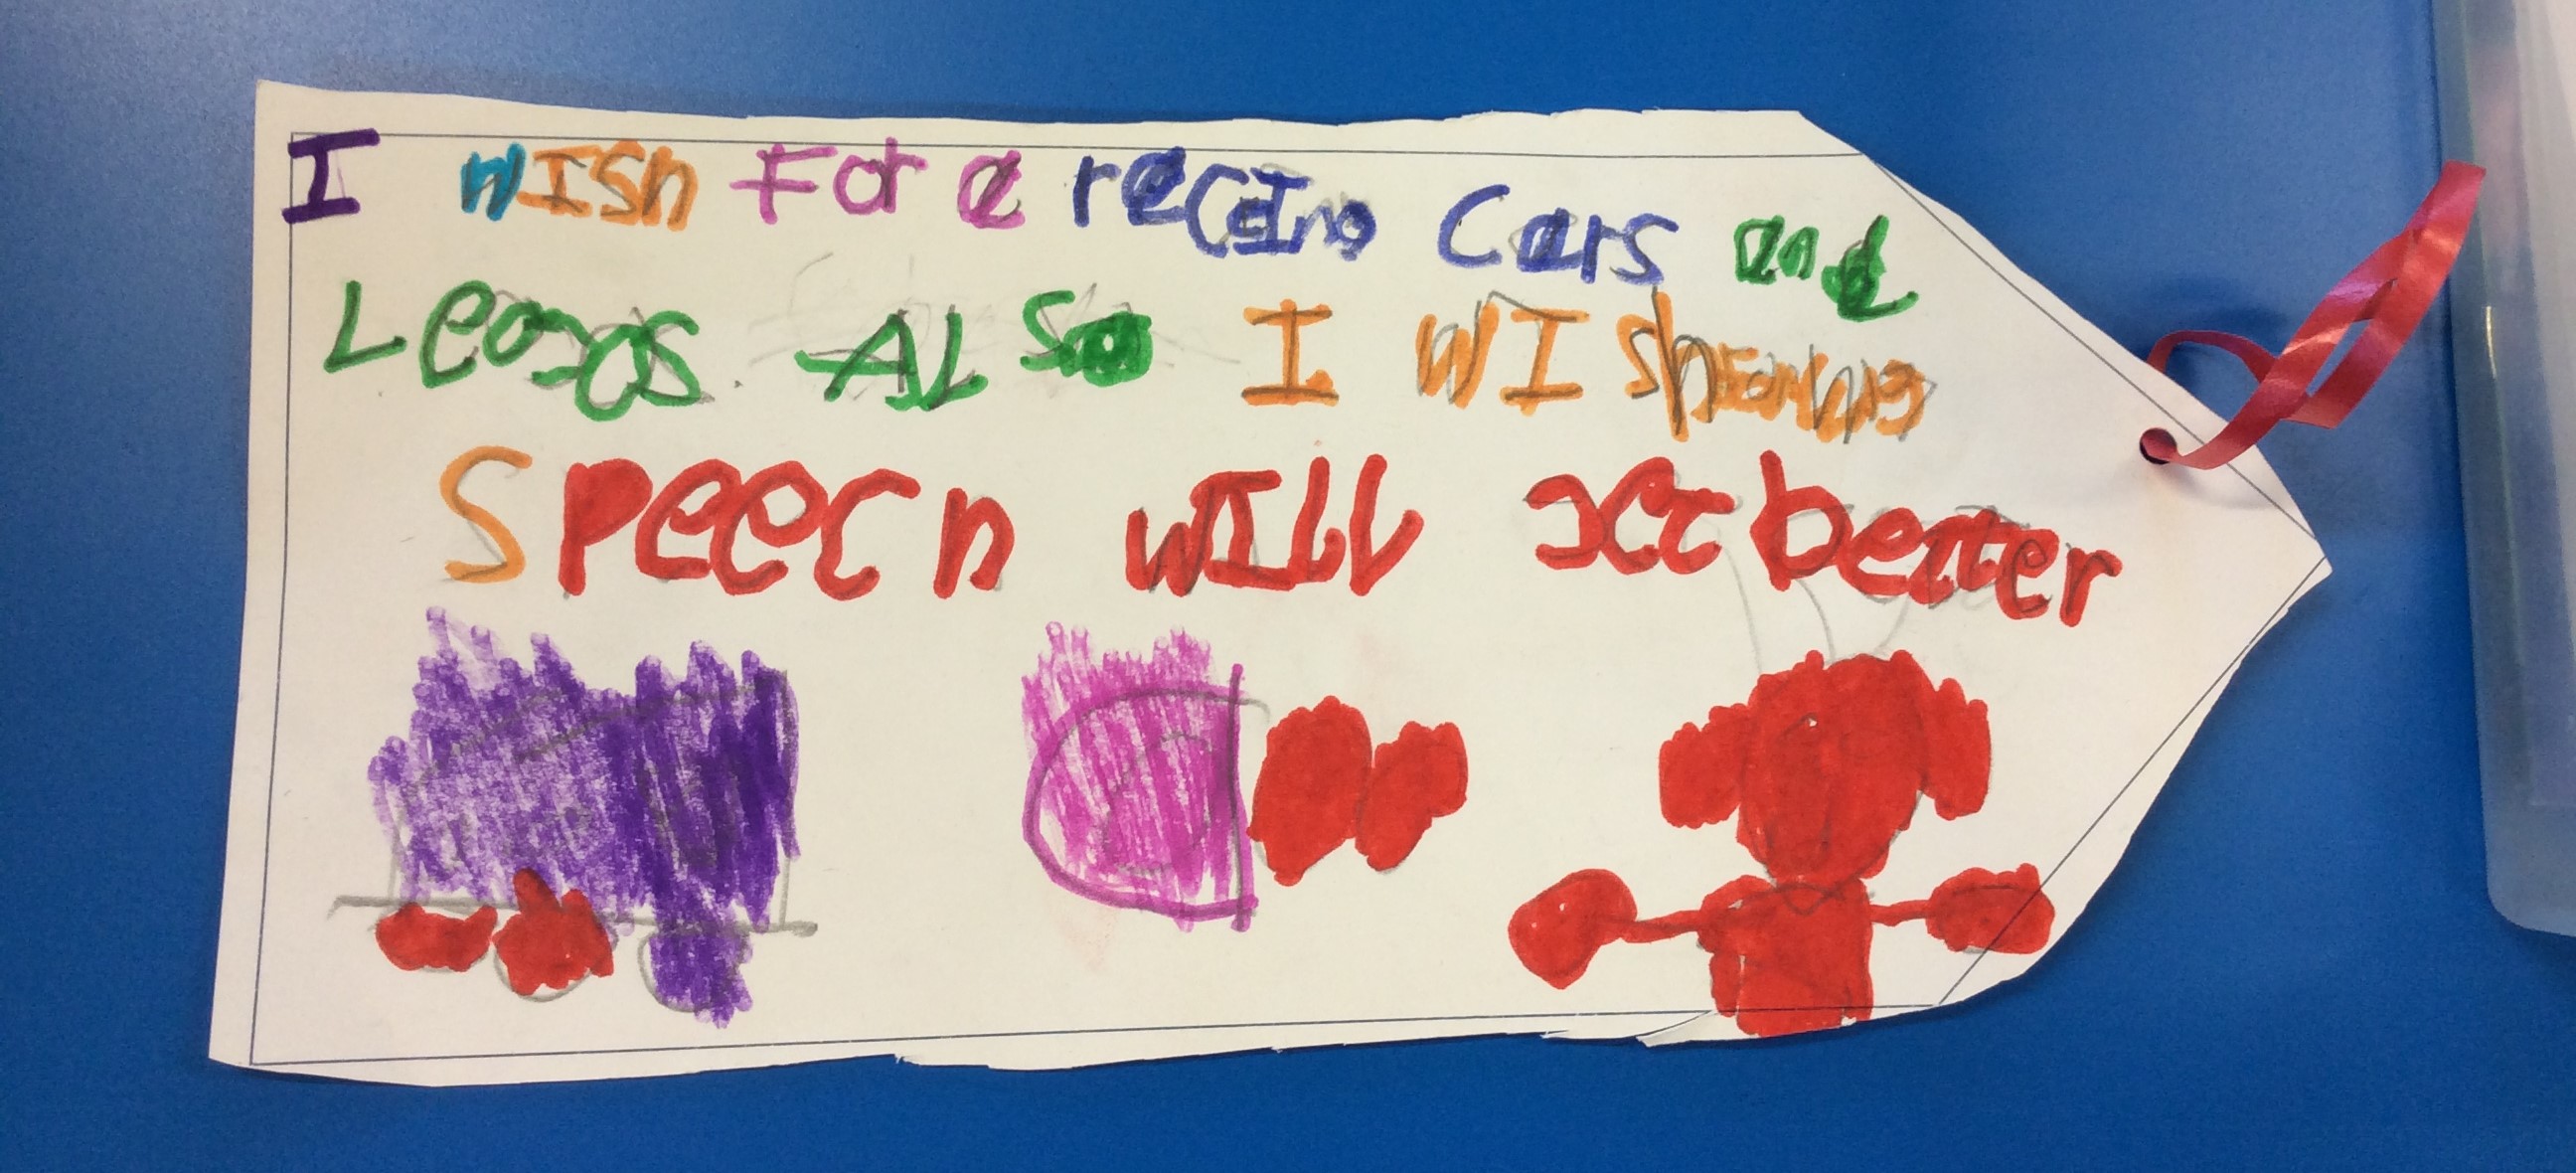 I wish For a racing Cars and
Legos. ALSo I wISh
SPeech will get better